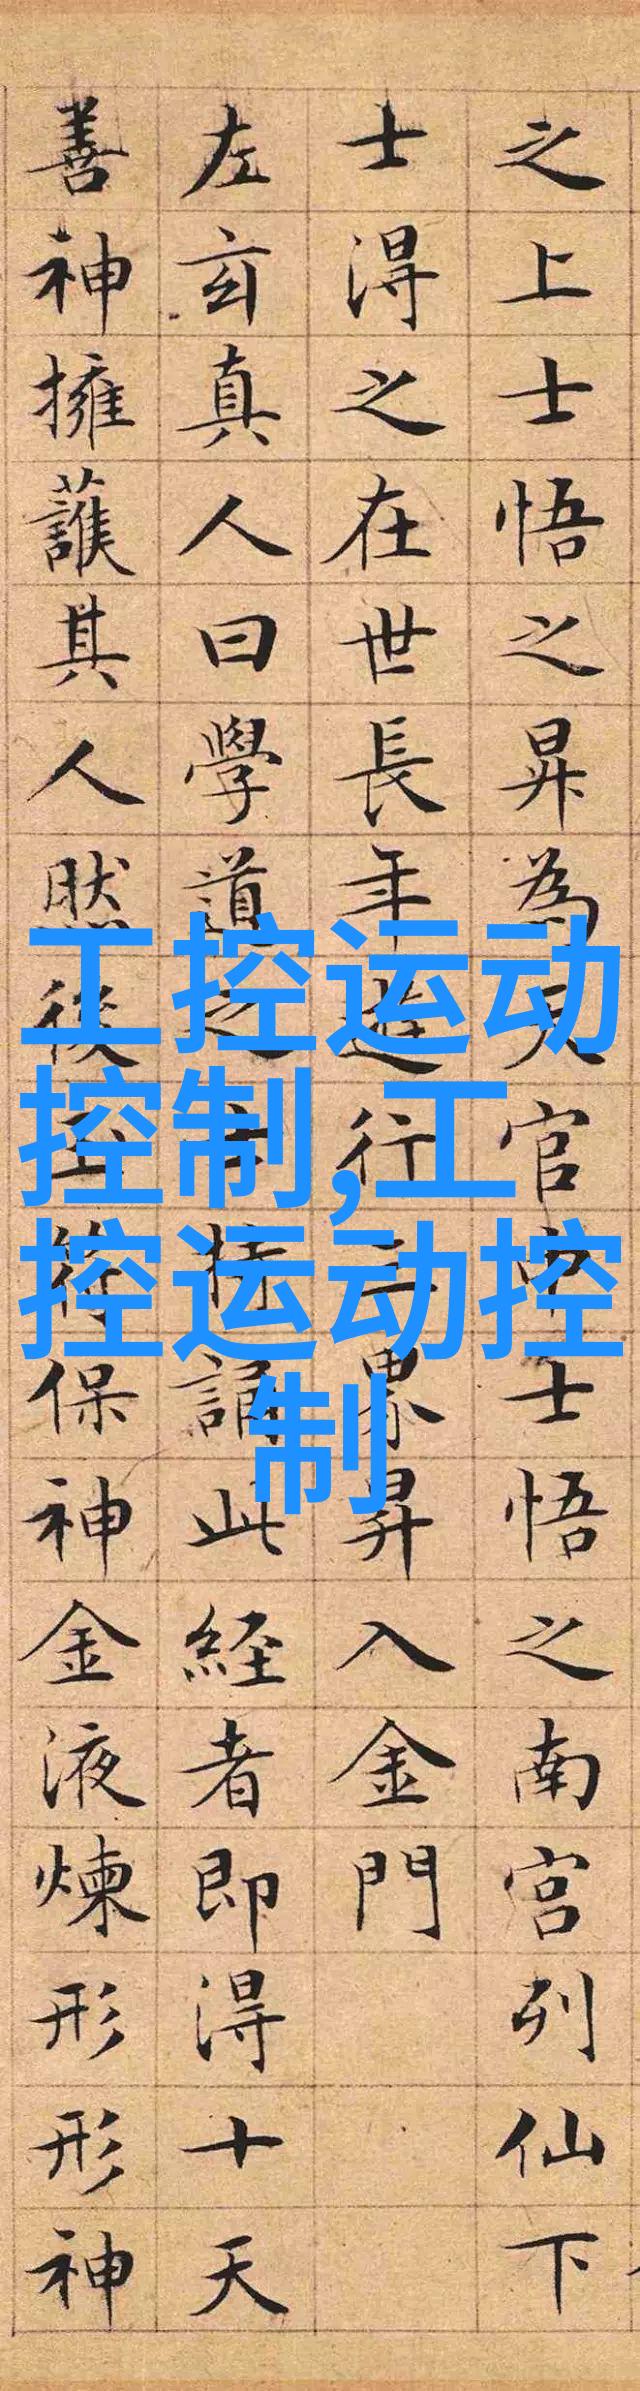 之上士悟之昇為天官中士悟之南宮列仙下
士得之在世長年遊行三界昇入金門
左玄真人曰學道之士持誦此經者即得十天
善神擁護其人然後玉符保神金液煉形形神
工控运动
控制,工
控运动控
制